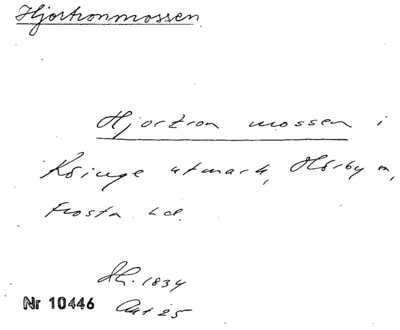 Hjortronmossen
Hjortron mossen i
Köinge utmark, Hörby sn,
Frosta hd.
Sk. 1834
Nr 10446
Akt 25